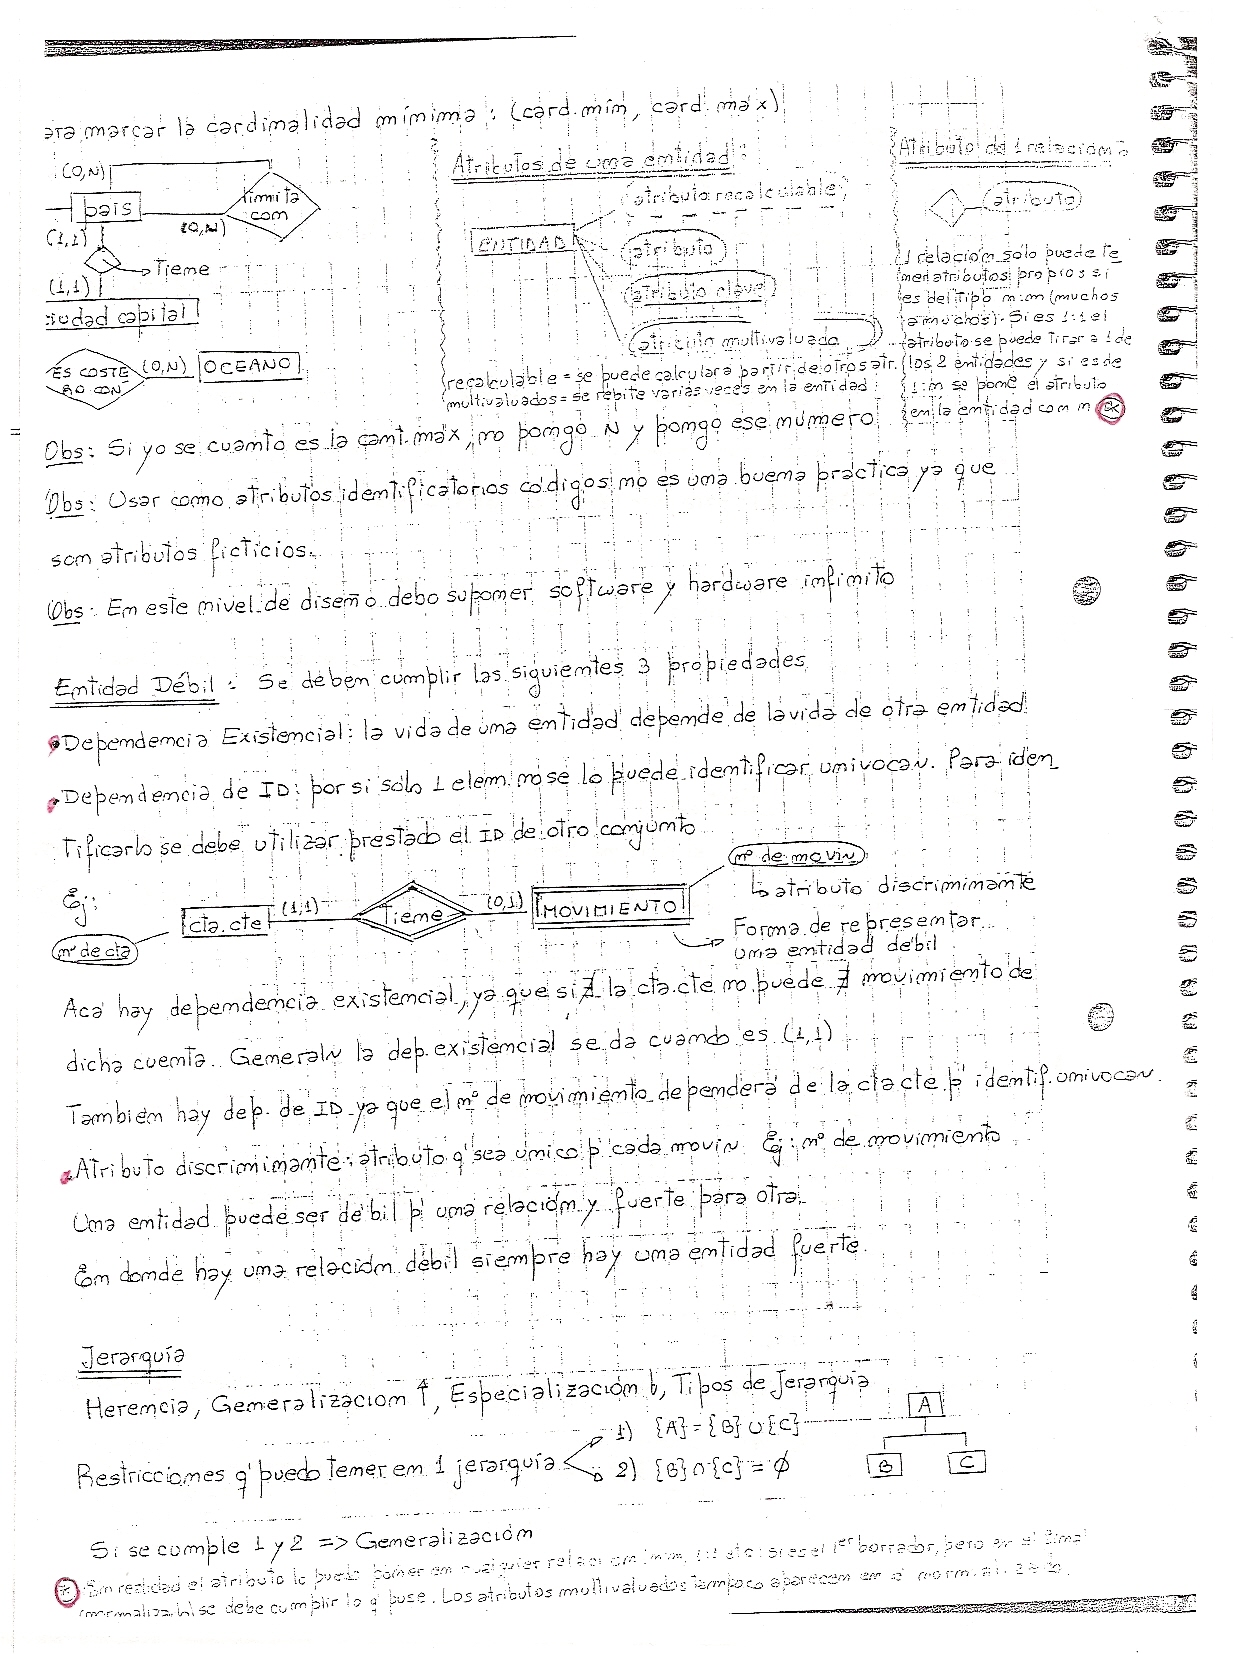 ara marcar la cardinalidad mínima : (card. mín, card. máx)
(0,N)
país
limita
con
(0,N)
(1,1)
Tiene
(1,1)
ciudad capital
ES COSTE
RO CON
(0,N)
OCEANO
Atributos de una entidad :
(atributo recalculable)
ENTIDAD
atributo
atributo clave
atributo multivaluado
recalculable = se puede calcular a partir de otros atr.
multivaluados = se repite varias veces en la entidad
Atributo de 1 relación :
atributo
1 relación solo puede te
ner atributos propios si
es del Tipo m:m (muchos
a muchos). Si es 1:1 el
atributo se puede Tirar a 1 de
los 2 entidades y si es de
1:m se pone el atributo
en la entidad con m *
Obs : Si yo se cuanto es la cant. máx, no pongo N y pongo ese número
Obs : Usar como atributos identificatorios códigos no es una buena práctica ya que
son atributos ficticios.
Obs : En este nivel de diseño debo suponer software y hardware infinito
Entidad Débil : Se deben cumplir las siguientes 3 propiedades
Dependencia Existencial : la vida de una entidad depende de la vida de otra entidad
Dependencia de ID : por si sólo 1 elem. no se lo puede identificar univocam. Para iden
Tificarlo se debe utilizar prestado el ID de otro conjunto
Ej :
cta. cte
(1,1)
Tiene
(0,1)
MOVIMIENTO
nº de movim
atributo discriminante
nº de cta
Forma de representar
una entidad débil
Acá hay dependencia existencial, ya que si ∄ la cta.cte no puede ∃ movimiento de
dicha cuenta. Generalm la dep. existencial se da cuando es (1,1)
También hay dep. de ID ya que el nº de movimiento dependerá de la cta cte p' identif. univocam.
Atributo discriminante : atributo q' sea único p' cada movim. Ej : nº de movimiento
Una entidad puede ser débil p' una relación y fuerte para otra.
En donde hay una relación débil siempre hay una entidad fuerte.
Jerarquía
Herencia, Generalización ↑, Especialización ↓, Tipos de Jerarquía
Restricciones q' puedo tener en 1 jerarquía
1) {A} = {B} ∪ {C}
2) {B} ∩ {C} = ∅
A
B
C
Si se cumple 1 y 2 => Generalización
* En realidad el atributo lo puedo poner en cualquier relación si es el 1er borrador, pero en el final
se debe cumplir lo q' puse. Los atributos multivaluados tampoco aparecen en el